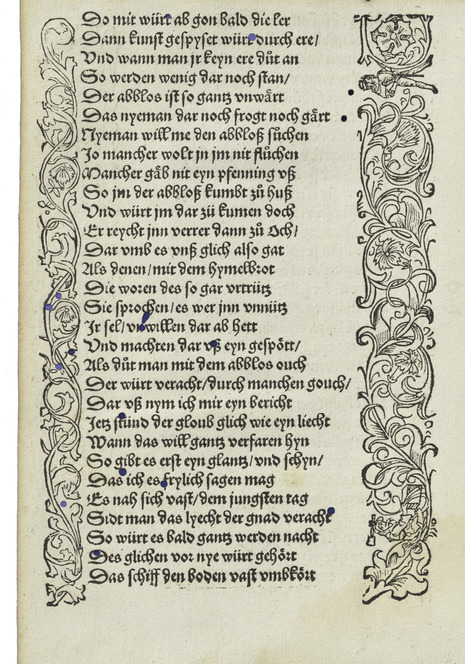 Do mit würt ab gon bald die ler
Dann kunst gespyset würt durch ere/
Vnd wann man jr keyn ere düt an
So werden wenig dar noch stan/
Der abblos ist so gantz vnwärt
Das nyeman dar noch frogt noch gärt
Nyeman will me den abbloß süchen
Jo mancher wolt jn jm nit flüchen
Mancher gäb nit eyn pfenning vß
So jm der abbloß kumbt zů huß
Vnd würt jm dar zů kumen doch
Er reycht jnn verrer dann zů Och/
Dar vmb es vnß glich also gat
Als denen/mit dem hymelbrot
Die woren des so gar vrtrütz
Sie sprochen/es wer jnn vnnütz
Jr sel/vnwillen dar ab hett
Vnd machten dar vß eyn gespött/
Als düt man mit dem abblos ouch
Der würt veracht/durch manchen gouch/
Dar vß nym ich mir eyn bericht
Jetz stünd der gloub glich wie eyn liecht
Wann das will gantz verfaren hyn
So gibt es erst eyn glantz/vnd schyn/
Das ich es frylich sagen mag
Es nah sich vast/dem jungsten tag
Sidt man das lyecht der gnad veracht
So würt es bald gantz werden nacht
Des glichen vor nye würt gehört
Das schiff den boden vast vmbkört